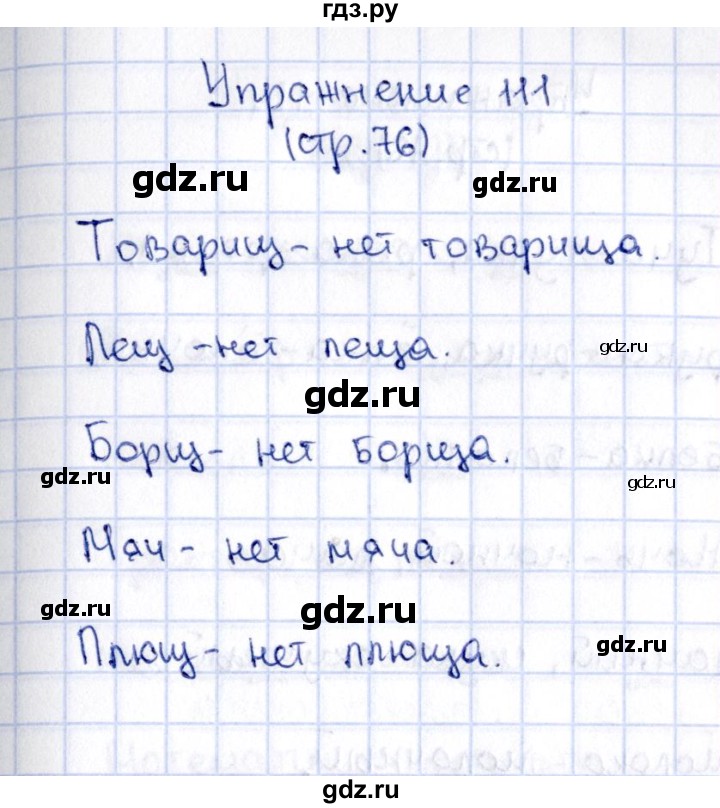 гдз.ру
Упражнение 111
(стр. 76)
gdz.ru gdz.ru
Товарищ - нет товарища.
Лещ - нет леща.
gdz.ru
gdz.ru
Борщ - нет борща.
gdz.ru gdz.ru
Мяч - нет мяча.
gdz.ru gdz.ru
Плющ - нет плюща.
gdz.ru
gdz.ru